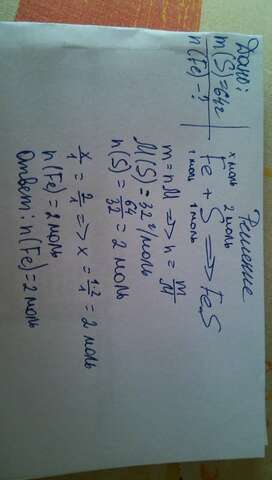 Дано:
m(S)=64г
n(Fe)-?
Решение
x моль 2 моль
Fe + S => FeS
1 моль 1 моль
m=nM => n= m/M
M(S)=32 г/моль
n(S)= 64/32 = 2 моль
x/1 = 2/1 => x = 1·2/1 = 2 моль
n(Fe)=2 моль
Ответ: n(Fe)=2 моль